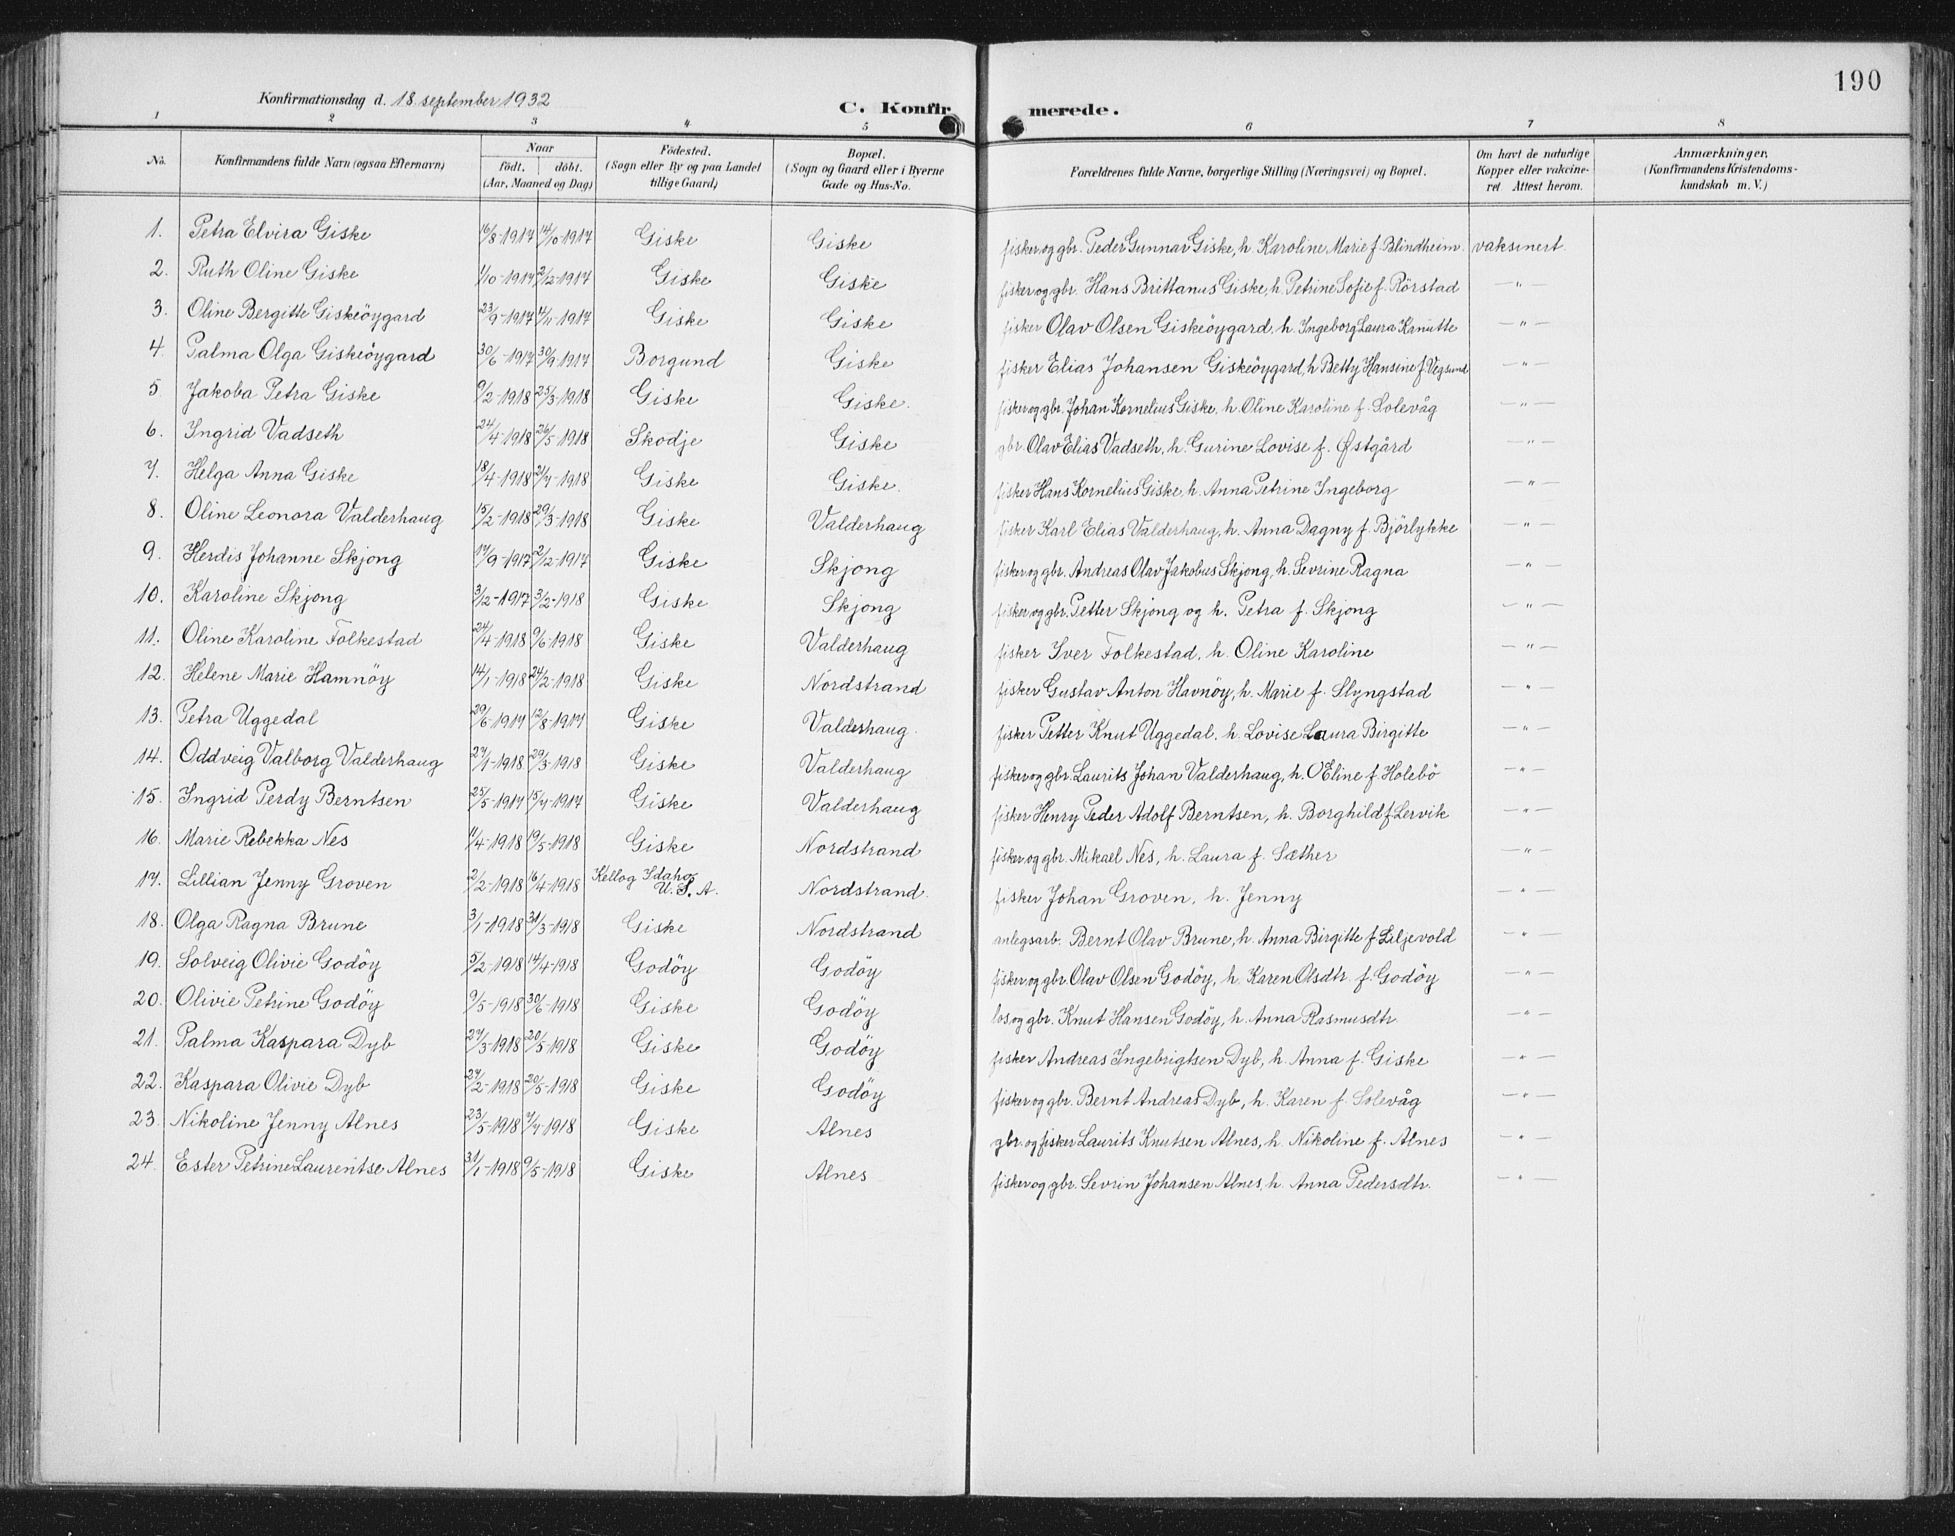 190
Konfirmationsdag d. 18 september 1932
C. Konfirmerede.
1 2 3 4 5 6 7 8
No. | Konfirmandens fulde Navn (ogsaa Efternavn) | Naar født. døbt. (Aar, Maaned og Dag) | Födested. (Sogn eller By og paa Landet tillige Gaard) | Bopæl. (Sogn og Gaard eller i Byerne Gade og Hus-No. | Forældrenes fulde Navne, borgerlige Stilling (Næringsvei) og Bopæl. | Om havt de naturlige Kopper eller vakcineret Attest herom. | Anmærkninger. (Konfirmandens Kristendomskundskab m. V.)
1. Petra Elvira Giske 16/8-1917 14/10-1917 Giske Giske fisker og gbr. Peder Gunnar Giske, h. Karoline Marie f. Blindheim. vaksinert.
2. Ruth Oline Giske 1/10-1917 2/12-1917 Giske Giske fisker og gbr. Hans Brittanus Giske, h. Petrine Sofie f. Rörstad —"—
3. Oline Bergitte Giskeöygard 23/9-1917 4/11-1917 Giske Giske fisker Olav Olsen Giskeöygard, h. Ingeborg Laura Knutte —"—
4. Palma Olga Giskeöygard 30/6-1917 30/9-1917 Borgund Giske fisker Elias Johansen Giskeöygard, h Betty Hansine f. Vegsund —"—
5 Jakoba Petra Giske 9/2-1918 25/3-1918 Giske Giske. fisker og gbr. Johan Kornelius Giske, h. Oline Karoline f. Solevåg —"—
6. Ingrid Vadseth 24/4-1918 26/5-1918 Skodje Giske gbr. Olav Elias Vadseth, h. Gurine Lovise f. Østgård —"—
7. Helga Anna Giske 18/4-1918 21/7-1918 Giske Giske. fisker Hans Kornelius Giske, h. Anna Petrine Ingeborg —"—
8. Oline Leonora Valderhaug 15/2-1918 29/3-1918 Giske Valderhaug fisker Karl Elias Valderhaug, h. Anna Dagny f. Björlykke —"—
9. Herdis Johanne Skjong 17/9-1917 2/12-1917 Giske Skjong fisker og gbr. Andreas Olav Jakobus Skjong, h. Sevrine Ragna —"—
10. Karoline Skjong 3/12-1917 3/2-1918 Giske Skjong fisker og gbr. Petter Skjong og h. Petra f. Skjong —"—
11. Oline Karoline Folkestad 24/4-1918 9/6-1918 Giske Valderhaug fisker Iver Folkestad, h. Oline Karoline —"—
12. Helene Marie Hamnöy 14/1-1918 24/2-1918 Giske Nordstrand fisker Gustav Anton Havnöy, h. Marie f. Slyngstad —"—
13. Petra Uggedal 29/6-1917 12/8-1917 Giske Valderhaug fisker Petter Knut Uggedal, h. Lovise Laura Birgitte —"—
14. Oddveig Valborg Valderhaug 27/1-1918 29/3-1918 Giske Valderhaug fisker og gbr. Laurits Johan Valderhaug, h. OEline f Holebö —"—
15. Ingrid Perdy Berntsen 25/5-1917 15/7-1917 Giske Valderhaug fisker Henry Peder Adolf Berntsen, h. Borghild f Lervik —"—
16. Marie Rebekka Nes 11/4-1918 19/5-1918 Giske Nordstrand fisker og gbr. Mikael Nes, h. Laura f. Sæther —"—
17. Lillian Jenny Groven 2/2-1918 16/4-1918 Kellog Idaho U.S.A. Nordstrand. fisker Johan Groven, h. Jenny —"—
18. Olga Ragna Brune 3/1-1918 31/3-1918 Giske Nordstrand anlegsarb. Bernt Olav Brune, h. Anna Birgitte f. Liljevold —"—
19. Solveig Olivie Godöy 5/2-1918 14/4-1918 Godöy Godöy fisker og gbr. Olav Olsen Godöy, h. Karen Olsdtr. f. Godöy —"—
20. Olivie Petrine Godöy 9/5-1918 30/6-1918 Giske Godöy los og gbr. Knut Hansen Godöy, h. Anna Rasmusdtr. —"—
21. Palma Kaspara Dyb 27/3-1918 20/5-1918 Giske Godöy fisker Andreas Ingebrigtsen Dyb, h. Anna f. Giske —"—
22. Kaspara Olivie Dyb 27/2-1918 20/5-1918 Giske Godöy fisker og gbr. Bernt Andreas Dyb, h. Karen f. Solevåg —"—
23. Nikoline Jenny Alnes 23/5-1918 7/7-1918 Giske Alnes gbr. og fisker Laurits Knutsen Alnes, h. Nikoline f. Alnes —"—
24. Ester Petrine Laurentse Alnes 31/1-1918 9/5-1918 Giske Alnes fisker og gbr. Sevrin Johansen Alnes, h. Anna Pedersdtr. —"—